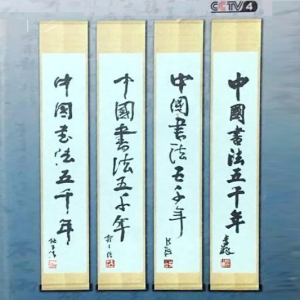 CCTV4
中国书法五千年
中國書法五千年
中国书法五千年
中國書法五千年